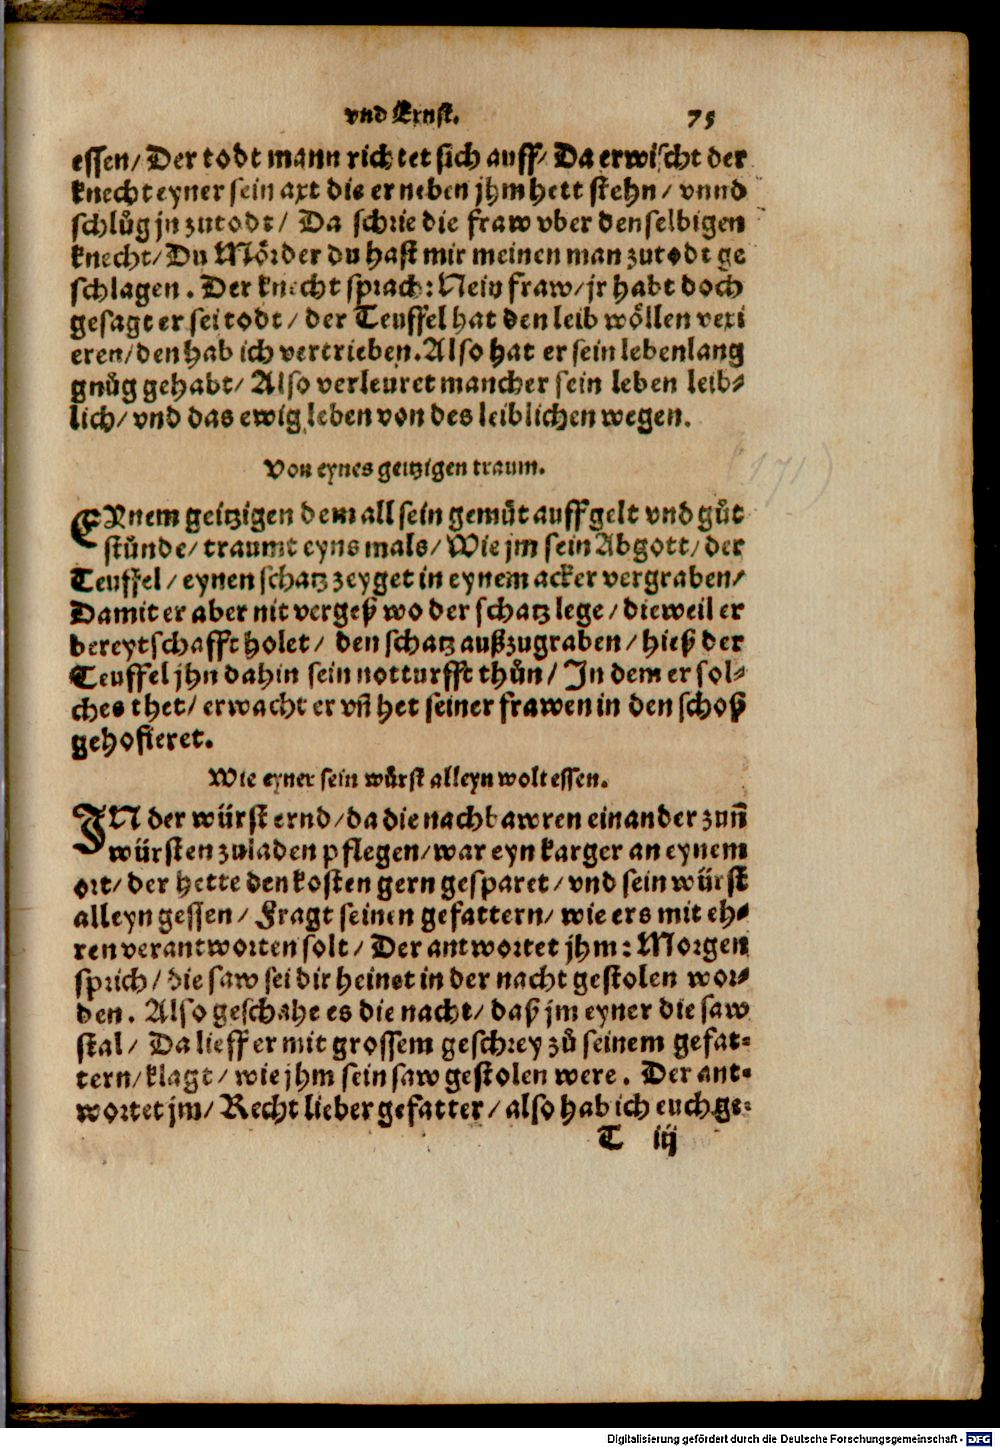 vnd Ernst. 75
essen/ Der todt mann richtet sich auff/ Da erwischt der
knecht eyner sein axt die er neben jhm hett stehn/ vnnd
schlůg jn zutodt/ Da schrie die fraw vber denselbigen
knecht/ Du Mörder du hast mir meinen man zutodt ge
schlagen. Der knecht sprach: Nein fraw/ jr habt doch
gesagt er sei todt/ der Teuffel hat den leib wöllen vexi
eren/ den hab ich vertrieben. Also hat er sein lebenlang
gnůg gehabt/ Also verleuret mancher sein leben leib-
lich/ vnd das ewig leben von des leiblichen wegen.
Von eynes geitzigen traum.
EYnem geitzigen dem all sein gemůt auff gelt vnd gůt
stůnde/ traumt eyns mals/ Wie jm sein Abgott/ der
Teuffel/ eynen schatz zeyget in eynem acker vergraben/
Damit er aber nit vergeß wo der schatz lege/ dieweil er
bereytschafft holet/ den schatz außzugraben/ hieß der
Teuffel jhn dahin sein notturfft thůn/ In dem er sol-
ches thet/ erwacht er vñ het seiner frawen in den schoß
gehofieret.
Wie eyner sein würst alleyn wolt essen.
IN der würst ernd/ da die nachbawren einander zun̄
würsten zuladen pflegen/ war eyn karger an eynem
ort/ der hette den kosten gern gesparet/ vnd sein würst
alleyn gessen/ Fragt seinen gefattern/ wie ers mit eh-
ren verantworten solt/ Der antwortet jhm: Morgen
sprich/ die saw sei dir heinet in der nacht gestolen wor-
den. Also geschahe es die nacht/ daß jm eyner die saw
stal/ Da lieff er mit grossem geschrey zů seinem gefat-
tern/ klagt/ wie jhm sein saw gestolen were. Der ant-
wortet jm/ Recht lieber gefatter/ also hab ich euch ge-
T iij
(171)
Digitalisierung gefördert durch die Deutsche Forschungsgemeinschaft - DFG